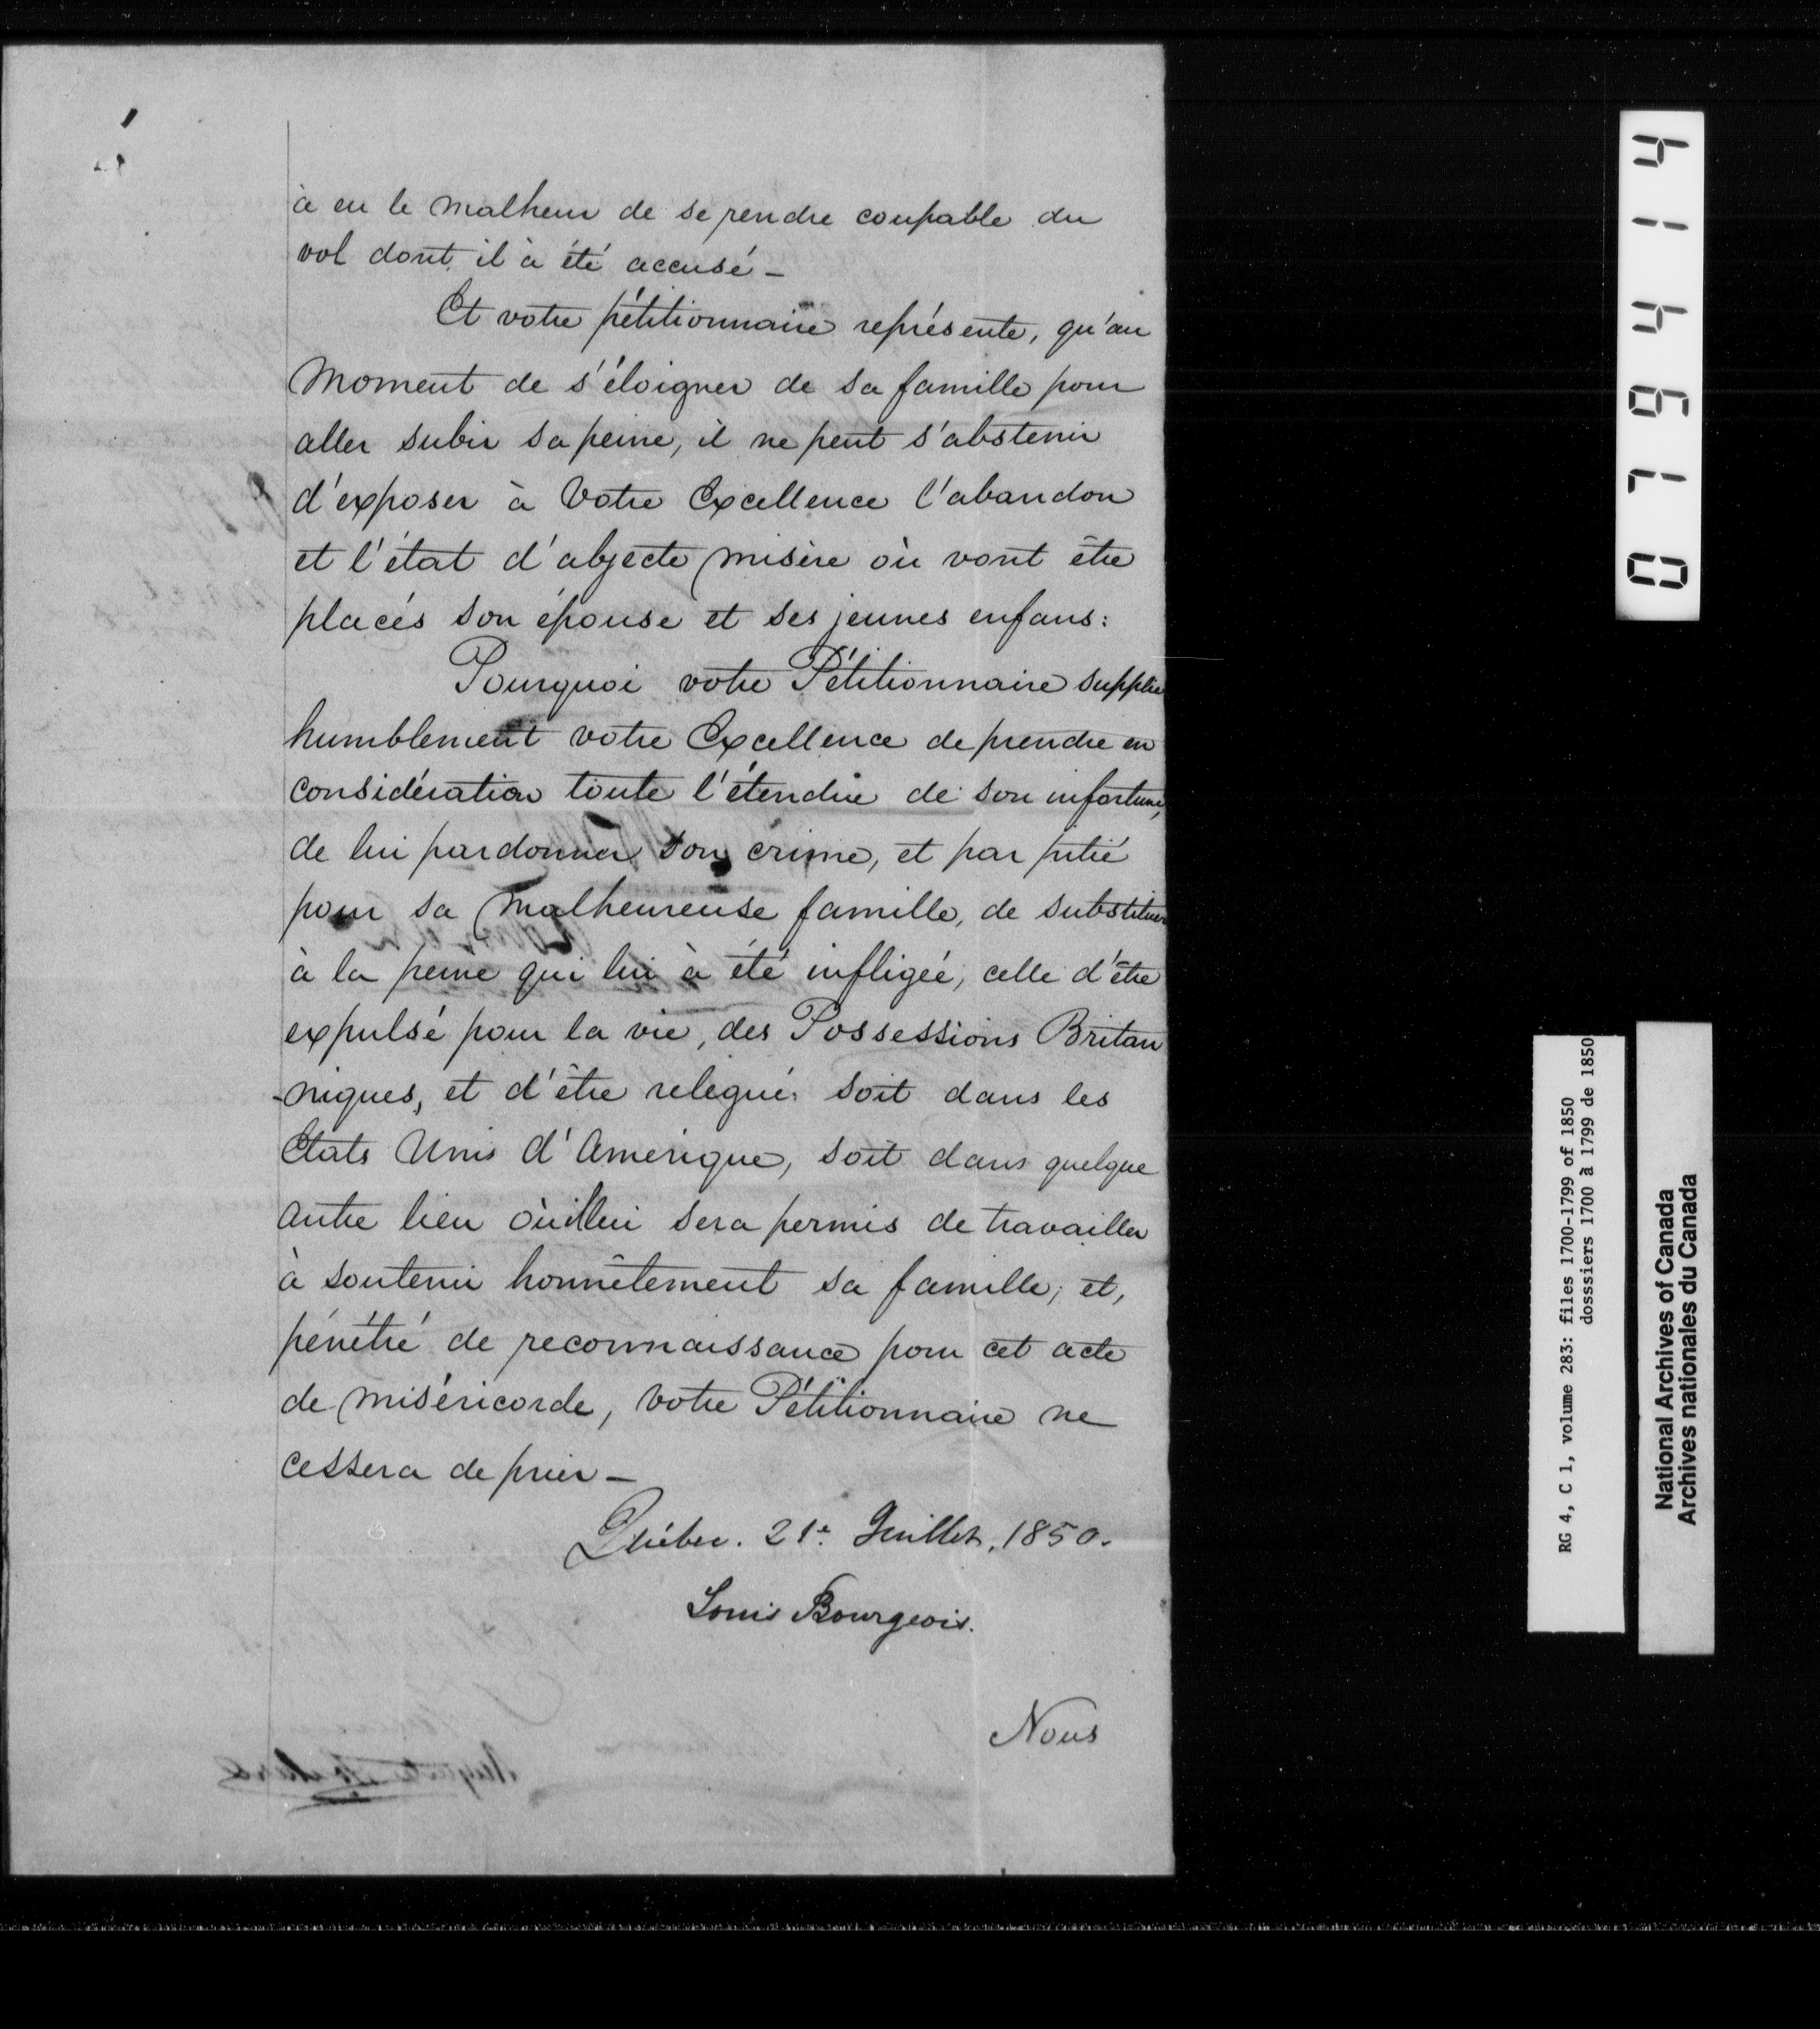 à eu le malheur de se rendre coupable du
vol dont il à été accusé -
Et votre pétitionnaire représente, qu'au
moment de s'éloigner de sa famille pour
aller subir sa peine, il ne peut s'abstenir
d'exposer à Votre Excellence l'abandon
et l'état d'abjecte misère où vont être
placés son épouse et ses jeunes enfans:
Pourquoi votre Pétitionnaire supplie
humblement votre Excellence de prendre en
considération toute l'étendue de son infortune,
de lui pardonner son crime, et par pitié
pour sa malheureuse famille, de substituer
à la peine qui lui à été infligée, celle d'être
expulsé pour la vie, des Possessions Britan
-niques, et d'être relegué. soit dans les
Etats Unis d'Amérique, soit dans quelque
autre lieu où il lui sera permis de travailler
à soutenir honnêtement sa famille; et,
pénétré de reconnaissance pour cet acte
de miséricorde, votre Pétitionnaire ne
cessera de prier -
Québec. 21e Juillet, 1850.
Louis Bourgeois.
Nous
079414
RG 4, C 1, volume 283: files 1700-1799 of 1850
dosssiers 1700 à 1799 de 1850
National Archives of Canada
Archives nationales du Canada